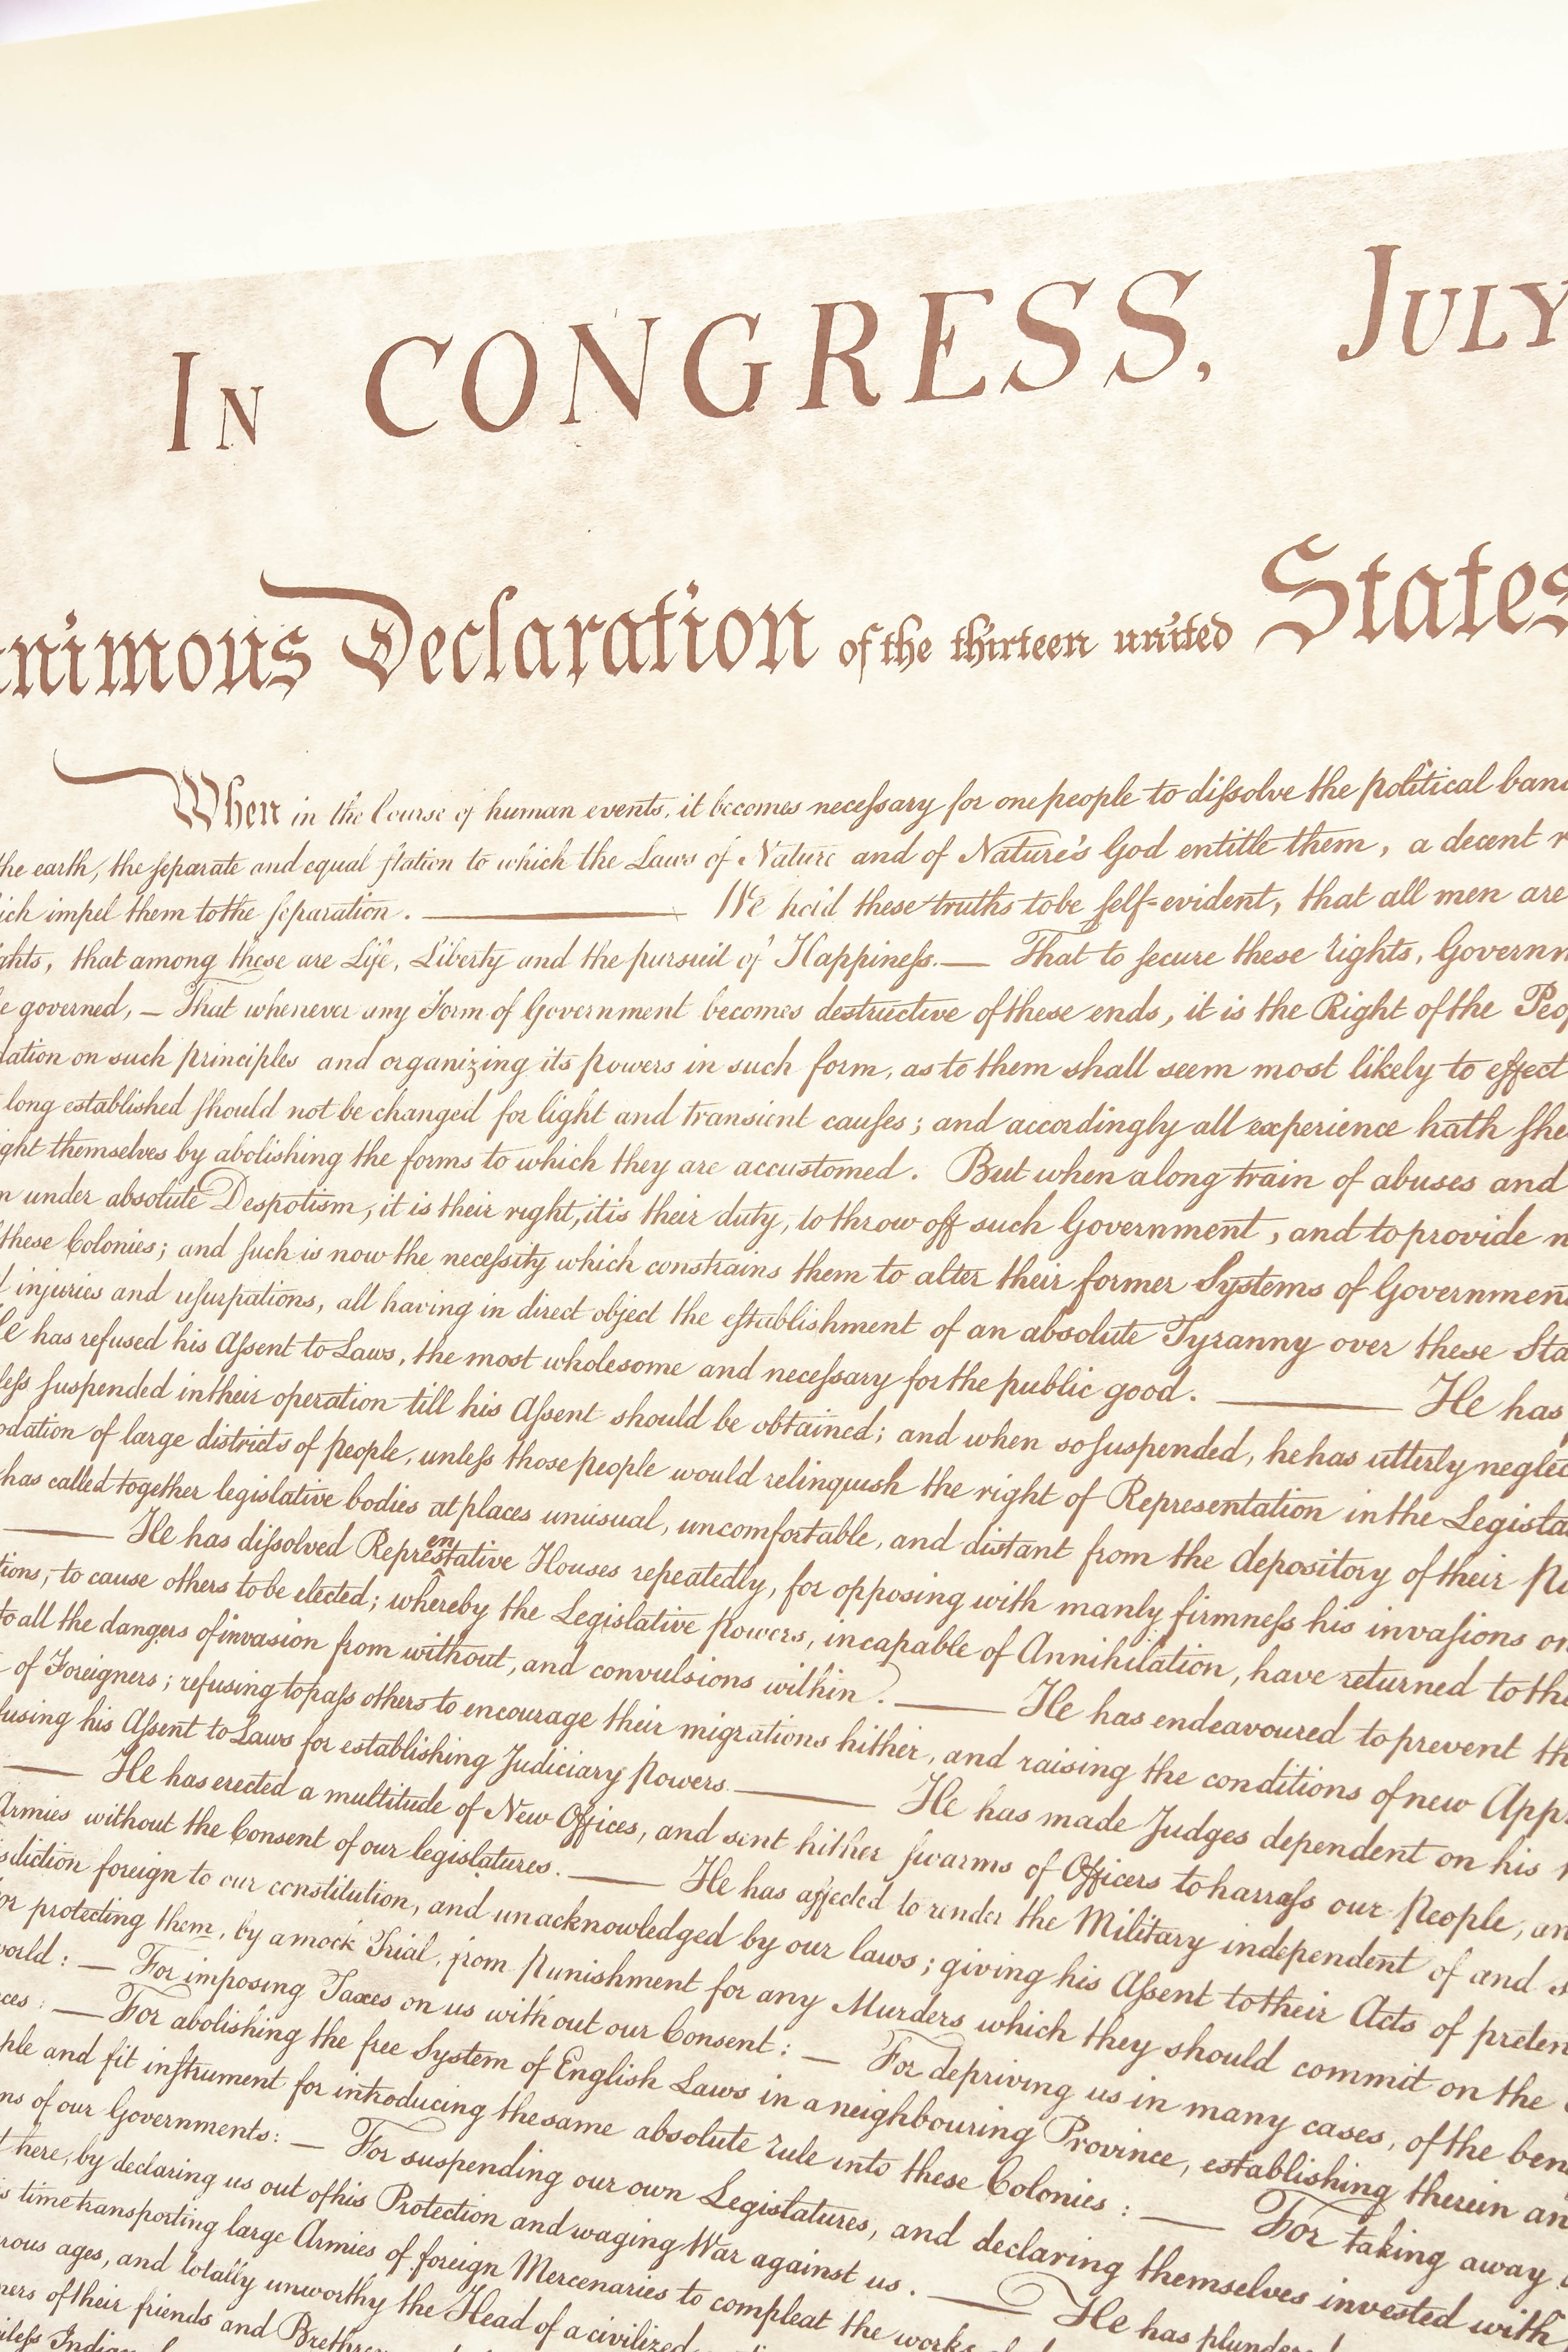 In CONGRESS, JULY
nimous Declaration of the thirteen united States
When in the Course of human events, it becomes necessary for one people to dissolve the political
the earth, the separate and equal station to which the Laws of Nature and of Nature's God entitle them, a decent
ich impel them to the separation. — We hold these truths to be self-evident, that all men are
ghts, that among these are Life, Liberty and the pursuit of Happiness. — That to secure these rights, Governm
e governed, — That whenever any Form of Government becomes destructive of these ends, it is the Right of the Peo
dation on such principles and organizing its powers in such form, as to them shall seem most likely to effect
long established should not be changed for light and transient causes; and accordingly all experience hath she
ght themselves by abolishing the forms to which they are accustomed. But when a long train of abuses and
n under absolute Despotism, it is their right, it is their duty, to throw off such Government, and to provide n
these Colonies; and such is now the necessity which constrains them to alter their former Systems of Government
injuries and usurpations, all having in direct object the establishment of an absolute Tyranny over these Sta
He has refused his Assent to Laws, the most wholesome and necessary for the public good. — He has
less suspended in their operation till his Assent should be obtained; and when so suspended, he has utterly neglec
odation of large districts of people, unless those people would relinquish the right of Representation in the Legisla
has called together legislative bodies at places unusual, uncomfortable, and distant from the depository of their Pu
— He has dissolved Representative Houses repeatedly, for opposing with manly firmness his invasions on
tions, to cause others to be elected; whereby the Legislative powers, incapable of Annihilation, have returned to the
to all the dangers of invasion from without, and convulsions within. — He has endeavoured to prevent th
of Foreigners; refusing to pass others to encourage their migrations hither, and raising the conditions of new App
fusing his Assent to Laws for establishing Judiciary powers. — He has made Judges dependent on his
— He has erected a multitude of New Offices, and sent hither swarms of Officers to harrass our People, an
Armies without the Consent of our legislatures. — He has affected to render the Military independent of and s
sdiction foreign to our constitution, and unacknowledged by our laws; giving his Assent to their Acts of preten
or protecting them, by a mock Trial, from punishment for any Murders which they should commit on the
world: — For imposing Taxes on us without our Consent: — For depriving us in many cases, of the ben
ces: — For abolishing the free System of English Laws in a neighbouring Province, establishing therein an
ple and fit instrument for introducing the same absolute rule into these Colonies: — For taking away
ns of our Governments: — For suspending our own Legislatures, and declaring themselves invested with
t here, by declaring us out of his Protection and waging War against us. — He has plunder
s time transporting large Armies of foreign Mercenaries to compleat the works
rous ages, and totally unworthy the Head of a civilized
ners of their friends and Brethren
iless Indian